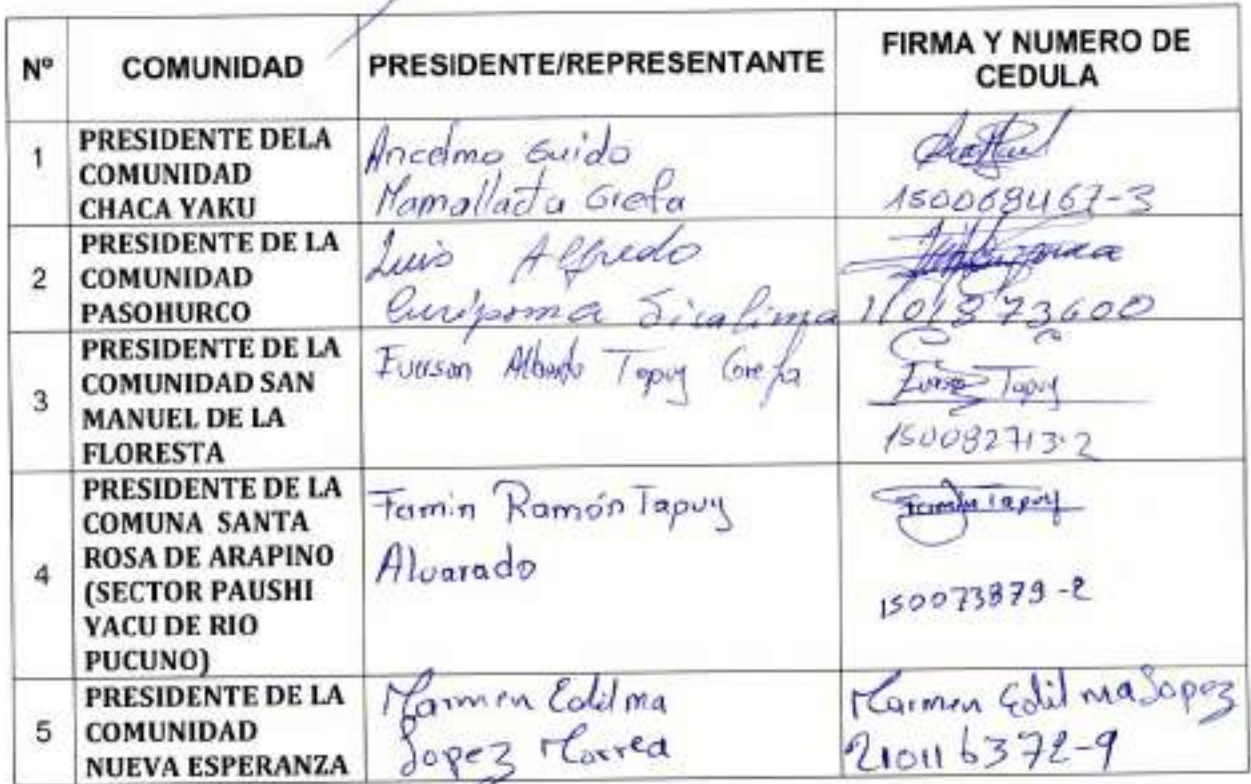 Nº COMUNIDAD PRESIDENTE/REPRESENTANTE FIRMA Y NUMERO DE
CEDULA
1
PRESIDENTE DELA
COMUNIDAD
CHACA YAKU
Ancelmo Guido
Mamallacta Grefa
150068467-3
2
PRESIDENTE DE LA
COMUNIDAD
PASOHURCO
Luis Alfredo
Curipoma
1101873600
3
PRESIDENTE DE LA
COMUNIDAD SAN
MANUEL DE LA
FLORESTA
Tapuy Grefa
Tapuy
150082713-2
4
PRESIDENTE DE LA
COMUNA SANTA
ROSA DE ARAPINO
(SECTOR PAUSHI
YACU DE RIO
PUCUNO)
Famin Ramón Tapuy
Alvarado
Famin Tapuy
150073879-2
5
PRESIDENTE DE LA
COMUNIDAD
NUEVA ESPERANZA
Marmen Edilma
Lopez
Marmen Edilma Lopez
210116372-9